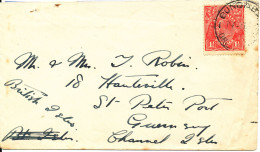 Mr. & Mrs. T. Robin.
18 Hauteville.
St Peter Port
Guernsey
Channel Isles
British Isles.